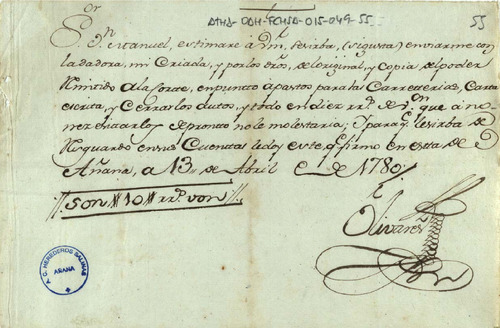 ATHA-DAH-FCHSA-015-049-55
55
S.r D.n Manuel, estimaré á Vm. se sirba, (si gusta) enviarme con
la dadora, mi Criada, y por los dros, del original, y copia del poder
Remitido á la Corte, en punto á pastos para las Carreterias, Carta
escrita, y Cerrar los autos, y todo en diez rr.s de v.n que á no
necesitarlos de pronto no le molestaria; I para q.e le sirba de
Resguardo en sus Cuentas le doy este, q.e firmo en esta de
Añana, a 13,, de Abril de 1780,,
||Son #10# rr.s von||
Olivares
A. G. HEREDEROS SALINAS
AÑANA